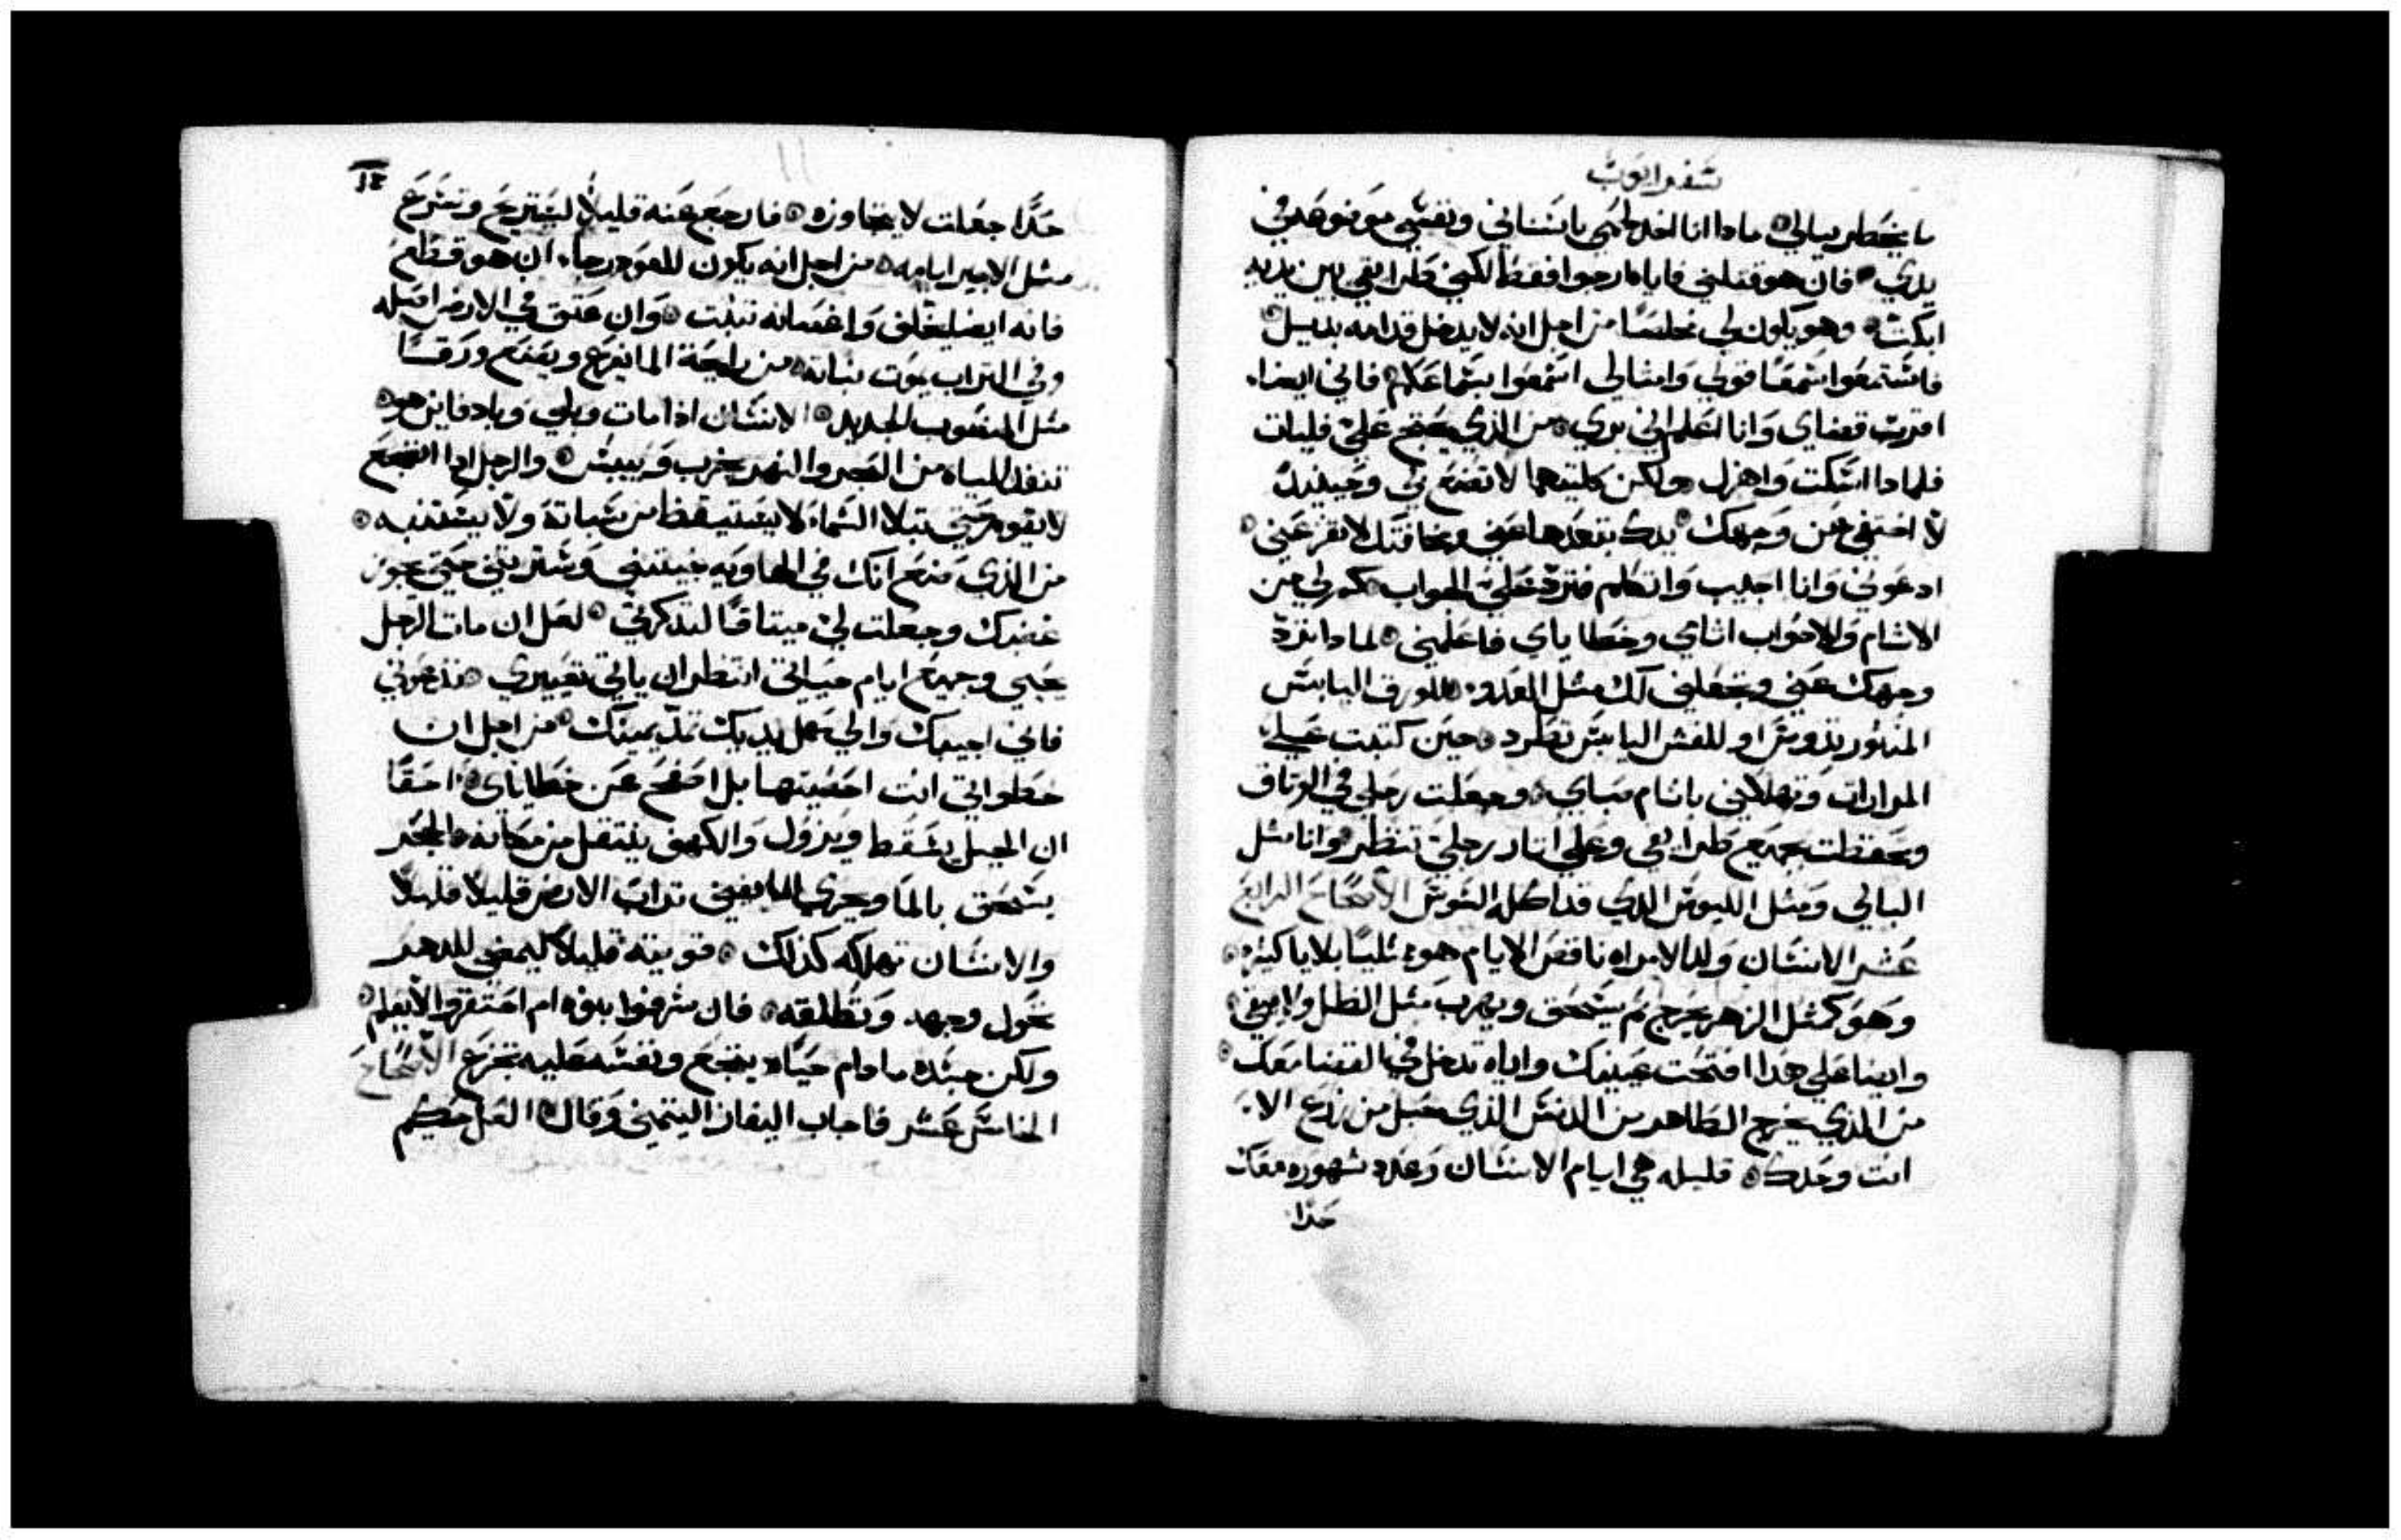 سفر ايوب
ما يخطر ببالي ماداا انا اخد لحمي باسناني ونفسي موضوعه في
يدي فان هو قتلني فاياه ارجوا فقط لكني طرايقي بين يديه
ابكت وهو يكون لي مخلصًا من اجل انه لا يدخل قدامه
فاستمعوا سمعًا قولي وامثالي اسمعوا بسماعكم فاني ايضا
اقربت قضاي وانا اعلم اني بري من الذي يحتج علي فليات
فلمادا اسكت واهزل ولكن كلتيهما لا تصنع بي وحينيد
لا اختفي من وجهك يدك بتعدها عني ومخافتك لا تفزعني
ادعوني وانا اجيب واتكلم فترد علي الجواب كم لي من
الاثام والاحواب اثامي وخطاياي فاعلمني لمادا ترد
وجهك عني وتجعلني لك مثل العدو للورق اليابس
المنثور تدوس او للقش اليابس تطرد حين كتبت علي
المرارات وتهلكني باثام صباي وجعلت رجلي في الوثاق
وحفظت جميع طرايقي وعلي اثار رجلي تنظر وانا مثل
البالي ومثل اللبوس الذي قد اكله السوس الاصحاح الرابع
عشر الانسان ولد الامراه ناقص الايام هو ممتليًا بلايا كثيره
وهو كمثل الزهر يخرج ثم ينسحق ويهرب مثل الظل ولا يبقي
وايضا علي هدا افتحت عينيك واياه تدخل في القضا معك
من الذي يخرج الطاهر من الدنس الذي حبل من زرع الا
انت وحدك قليله هي ايام الانسان وعدد شهوره معك
حدا
١٢
11
حدًا جعلت لا يتجاوزه فارجع عنه قليلاً ليستريح وتسرع
مثل الاجير ايامه من اجل انه يكون للعود رجاء ان هو قطع
فانه ايضا يخلف واغصانه تنبت وان عتق في الارض اصله
وفي التراب يموت نباته من رايحة الما يفرع ويصنع ورقًا
مثل المنصوب الجديد الانسان اذا مات وبلي وباد فاين هو
تنفد المياه من البحر والنهر يخرب وييبس والرجل ادا انضجع
لا يقوم حتي تبلا السماء لا يستيقظ من سباته ولا يستنبه
من الذي يمنع انك في الهاويه خبيتني وسترتني حتي يجوز
غضبك وجعلت لي ميتاقًا لتدكرني لعل ان مات الرجل
يحيي وجميع ايام حياتي انتظر ان ياتي تغييري تدعوني
فاني اجيبك والي عمل يديك تمد يمينك من اجل ان
خطواتي انت احصيتها بل اصفح عن خطاياي احقًا
ان الجبل يسقط ويزول والكهف ينتقل من مكانه الحجر
ينسحق بالما ويجري الما يفني تراب الارض قليلا قليلاً
والانسان تهلكه كذلك قويته قليلا ليمضي للدهر
تحول وجهه وتطلقه فان شرفوا بنوه ام احتقروا لا يعلم
ولكن جسده مادام حيًا يتوجع ونفسه عليه تجزع الاصحاح
الخامس عشر فاجاب اليفاز اليتميني وقال العل حكيم